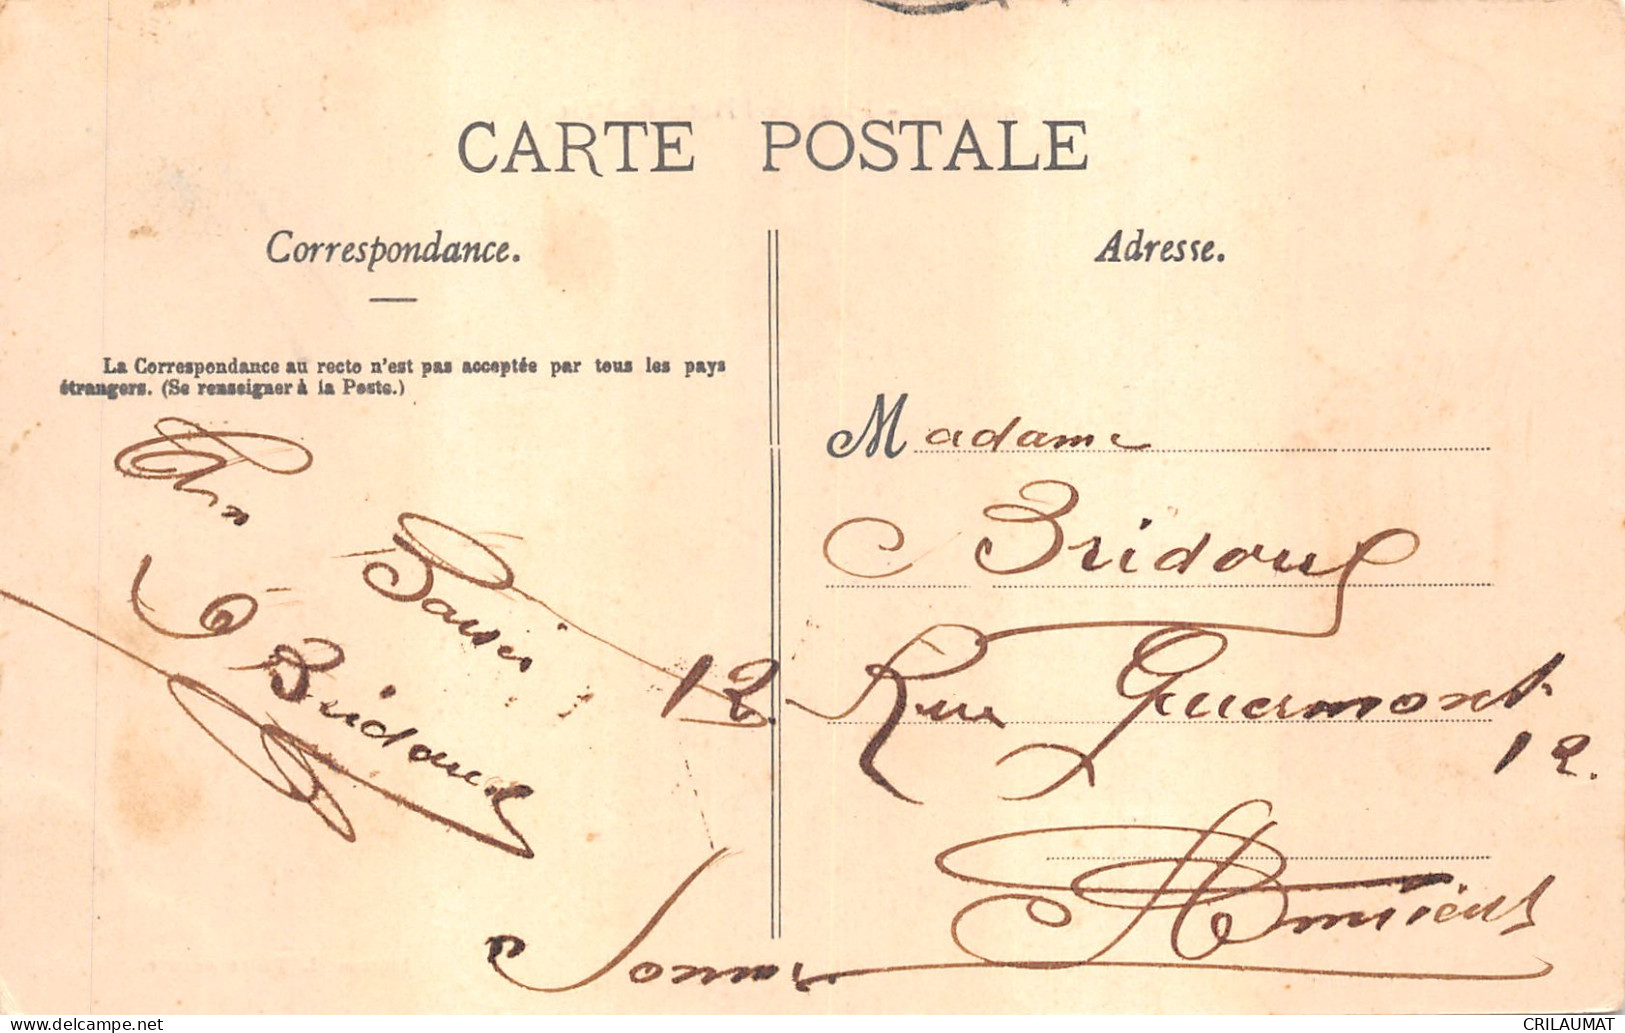 CARTE POSTALE
Correspondance.
La Correspondance au recto n'est pas acceptée par tous les pays
étrangers. (Se renseigner à la Poste.)
Bridoux
Adresse.
Madame
Bridoux
12. Rue Guermont
12.
Amiens
Somme
CRILAUMAT